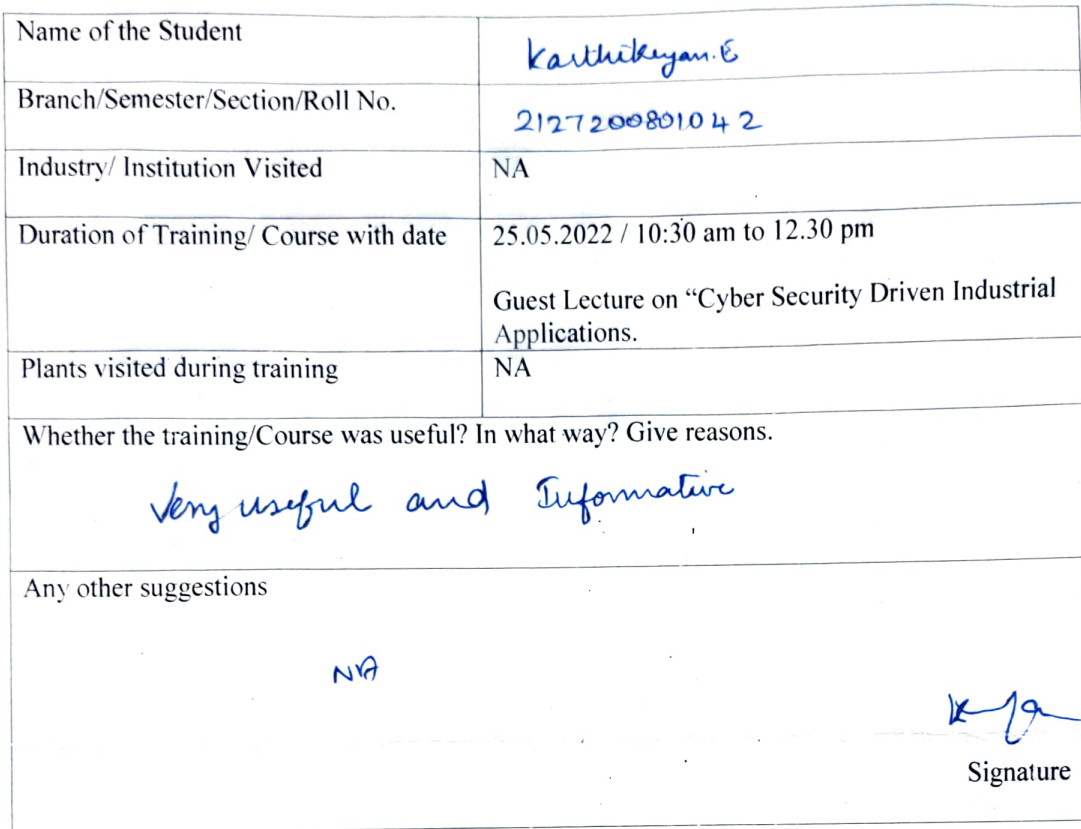 Name of the Student
Karthikeyan.E
Branch/Semester/Section/Roll No.
2127200801042
Industry/ Institution Visited
NA
Duration of Training/ Course with date
25.05.2022 / 10:30 am to 12.30 pm
Guest Lecture on “Cyber Security Driven Industrial
Applications.
Plants visited during training
NA
Whether the training/Course was useful? In what way? Give reasons.
Very useful and Informative
Any other suggestions
NA
Signature